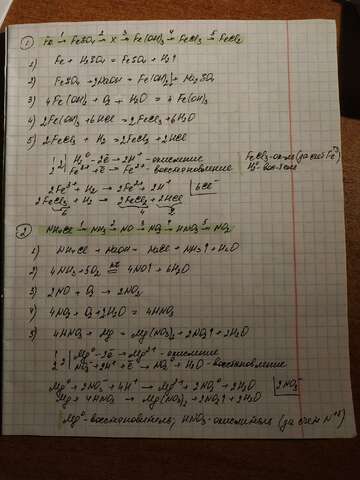 ① Fe →¹ FeSO₄ →² X →³ Fe(OH)₃ →⁴ FeCl₃ →⁵ FeCl₂
1) Fe + H₂SO₄ = FeSO₄ + H₂↑
2) FeSO₄ + 2NaOH = Fe(OH)₂↓ + Na₂SO₄
3) 4Fe(OH)₂ + O₂ + H₂O = 4Fe(OH)₃
4) 2Fe(OH)₃ + 6HCl = 2FeCl₃ + 6H₂O
5) 2FeCl₃ + H₂ = 2FeCl₂ + 2HCl
1 | H₂⁰ - 2ē → 2H⁺ - окисление
2 | Fe³⁺ + ē → Fe²⁺ - восстановление
FeCl₃ - ок-ль (за счёт Fe⁺³)
H₂⁰ - вос-ль
2Fe³⁺ + H₂ → 2Fe²⁺ + 2H⁺ | 6Cl⁻
2FeCl₃ + H₂ → 2FeCl₂ + 2HCl
6 4 2
② NH₄Cl →¹ NH₃ →² NO →³ NO₂ →⁴ HNO₃ →⁵ NO₂
1) NH₄Cl + NaOH = NaCl + NH₃↑ + H₂O
2) 4NH₃ + 5O₂ = 4NO↑ + 6H₂O
3) 2NO + O₂ → 2NO₂
4) 4NO₂ + O₂ + 2H₂O = 4HNO₃
5) 4HNO₃ + Mg = Mg(NO₃)₂ + 2NO₂↑ + 2H₂O
1 | Mg⁰ - 2ē → Mg²⁺ - окисление
2 | NO₃⁻ + 2H⁺ + ē → NO₂⁰ + H₂O - восстановление
Mg⁰ + 2NO₃⁻ + 4H⁺ → Mg²⁺ + 2NO₂⁰ + 2H₂O | 2NO₃⁻
Mg + 4HNO₃ → Mg(NO₃)₂ + 2NO₂↑ + 2H₂O
Mg⁰ - восстановитель, HNO₃ - окислитель (за счёт N⁺⁵)